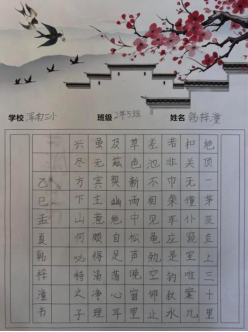 学校 二小 班级 2年5班 姓名 韩梓潼
绝顶一茅茨直上三十里
扣关无僮仆窥室唯案几
若非巾柴车应是钓秋水
差池不相见黾勉空仰止
草色新雨中松声晚窗里
及兹契幽绝自足荡心耳
虽无宾主意颇得清净理
兴尽方下山何必待之子
己巳孟夏韩梓潼书